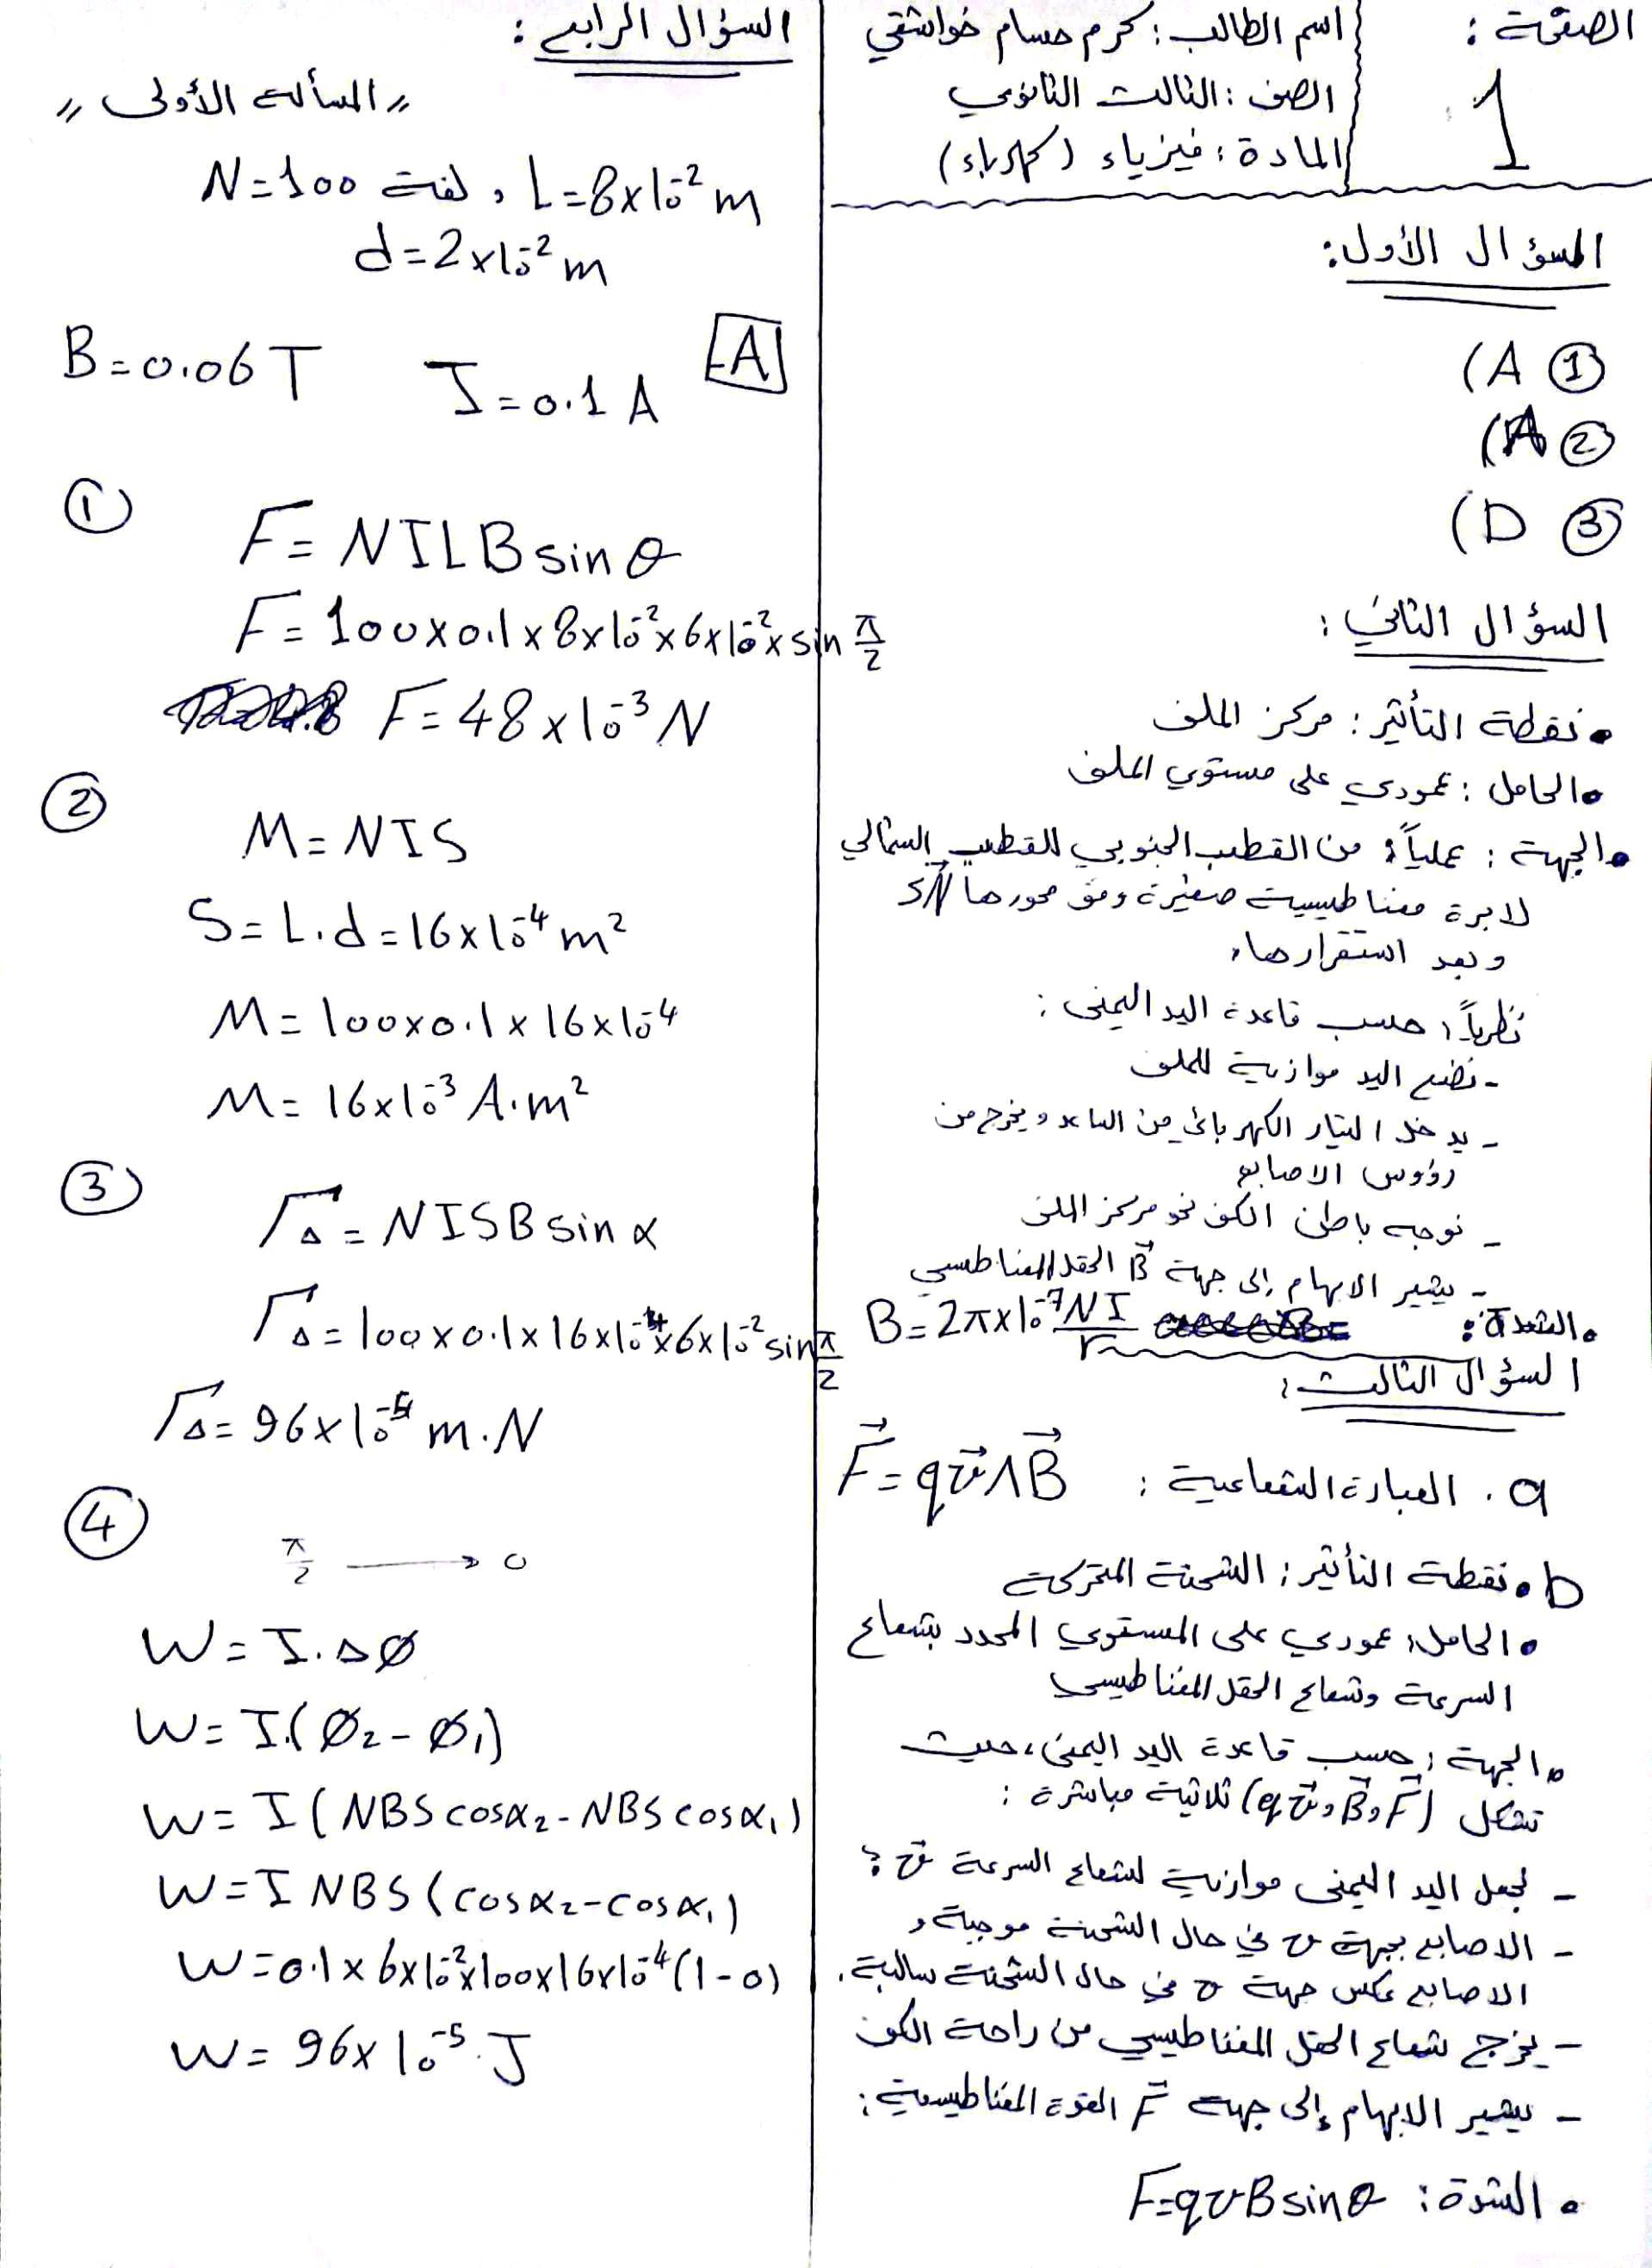 الصفحة :
1
اسم الطالب : كرم حسام خواشقي
الصف : الثالث الثانوي
المادة : فيزياء (كهرباء)
السؤال الأول :
① A)
② A)
③ D)
السؤال الثاني :
• نقطة التأثير : مركز الملف
• الحامل : عمودي على مستوي الملف
• الجهة : عملياً : من القطب الجنوبي للقطب الشمالي
لابرة مغناطيسية صغيرة وفق محورها SN
وبعد استقرارها.
نظرياً : حسب قاعدة اليد اليمنى :
- نضع اليد موازية للملف
- يدخل التيار الكهربائي من الساعد ويخرج من
رؤوس الاصابع
- نوجه باطن الكف نحو مركز الملف
- يشير الابهام إلى جهة B الحقل المغناطيسي
• الشدة : B = 2π×10⁻⁷ NI/r
السؤال الثالث :
a . العبارة الشعاعية : F = qv∧B
b • نقطة التأثير : الشحنة المتحركة
• الحامل : عمودي على المستوي المحدد بشعاع
السرعة وشعاع الحقل المغناطيسي
• الجهة : حسب قاعدة اليد اليمنى ، حيث
تشكل (F و B و qv) ثلاثية مباشرة :
- نجعل اليد اليمنى موازية لشعاع السرعة v :
- الاصابع بجهة v في حال الشحنة موجبة و
الاصابع عكس جهة v في حال الشحنة سالبة .
- يخرج شعاع الحقل المغناطيسي من راحة الكف
- يشير الابهام إلى جهة F القوة المغناطيسية :
• الشدة : F=qvBsinθ
السؤال الرابع :
" المسألة الأولى "
N=100 لفة , L=8×10⁻² m
d=2×10⁻² m
A
B=0.06 T I=0.1 A
①
F= NILB sin θ
F= 100×0.1×8×10⁻²×6×10⁻²×sin π/2
F=48×10⁻³ N
②
M=NIS
S= L.d=16×10⁻⁴ m²
M= 100×0.1×16×10⁻⁴
M= 16×10⁻³ A.m²
③
ΓΔ = NISB sin α
ΓΔ = 100×0.1×16×10⁻⁴×6×10⁻² sin π/2
ΓΔ = 96×10⁻⁵ m.N
④
π/2 → 0
W= I.ΔØ
W= I.(Ø₂-Ø₁)
W= I(NBS cosα₂-NBS cosα₁)
W=I NBS(cosα₂-cosα₁)
W=0.1×6×10⁻²×100×16×10⁻⁴(1-0)
W= 96×10⁻⁵ J